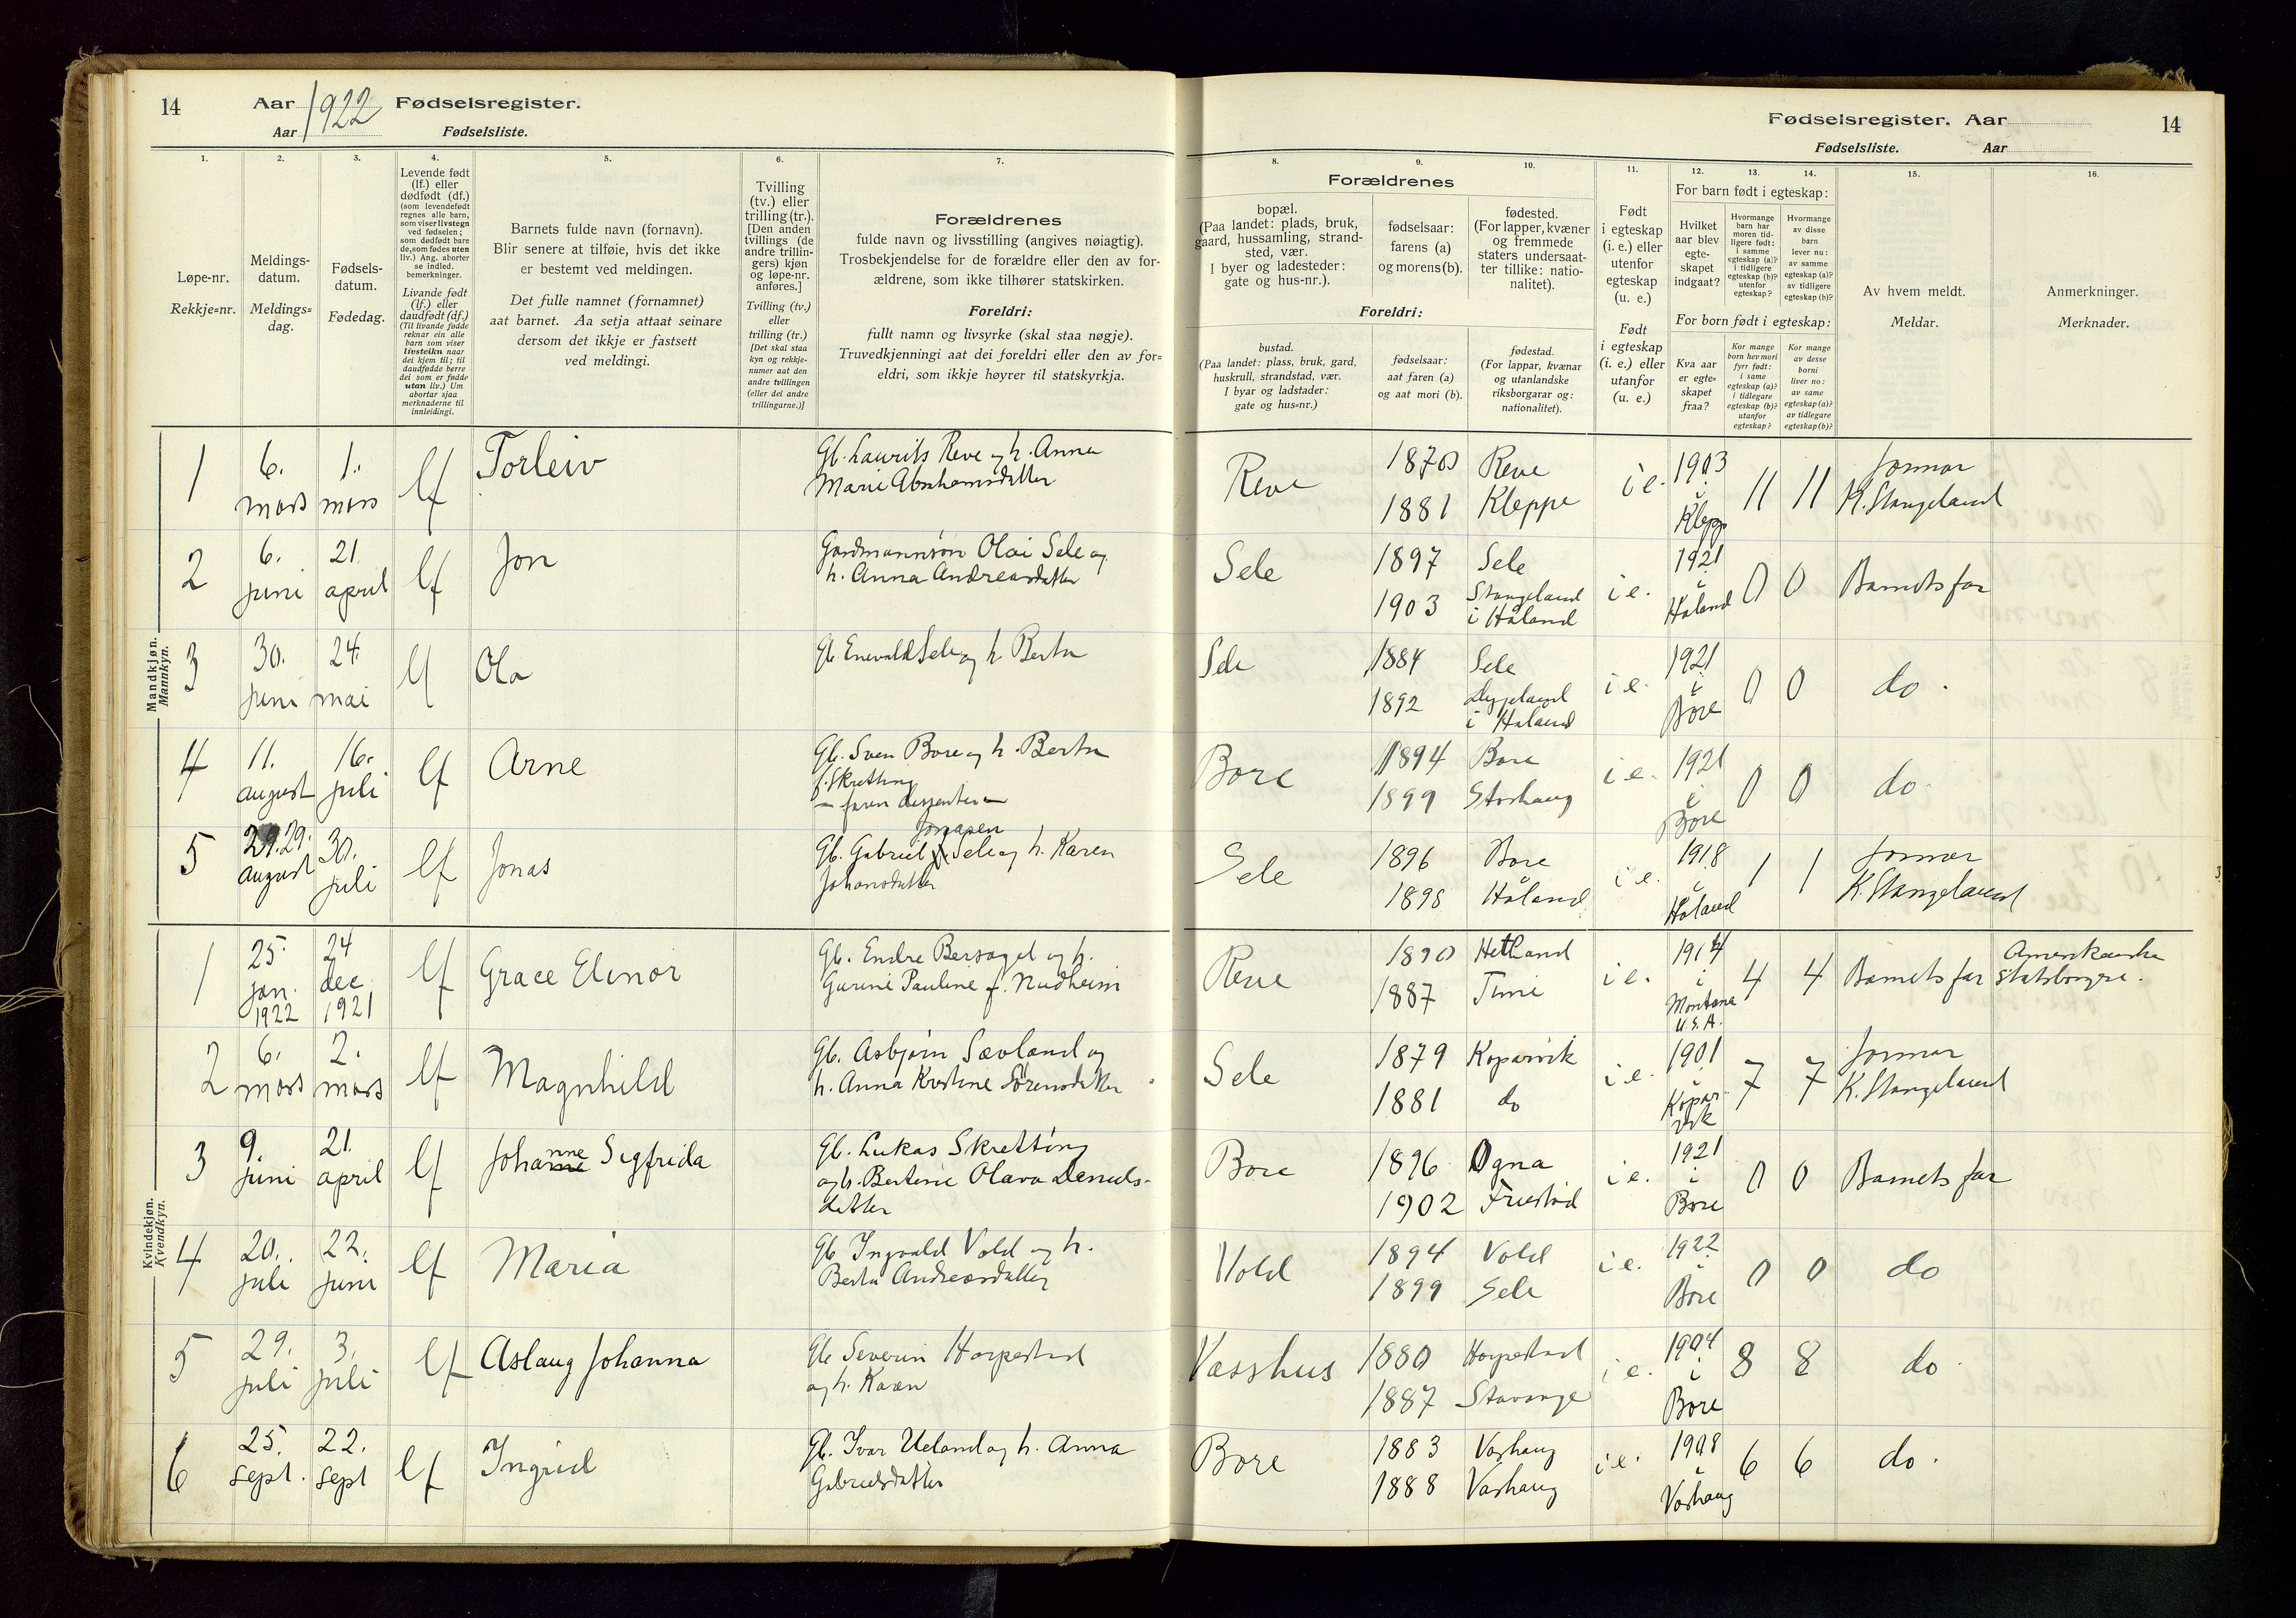 14
Aar 1922 Fødselsregister.
Aar Fødselsliste.
1.
2.
3.
4.
5.
6.
7.
Løpe-nr.
Rekkje=nr.
Meldings-
datum.
Meldings=
dag.
Fødsels-
datum.
Fødedag.
Levende født
(lf.) eller
dødfødt (df.)
(som levendefødt
regnes alle barn,
som viser livstegn
ved fødselen;
som dødfødt bare
de, som fødes uten
liv.) Ang. aborter
se indled.
bemerkninger.
Livande født
(lf.) eller
daudfødt (df.)
(Til livande fødde
reknar ein alle
barn som viser
livsteikn naar
dei kjem til; til
daudfødde berre
dei som er fødde
utan liv.) Um
abortar sjaa
merknaderne til
innleidingi.
Barnets fulde navn (fornavn).
Blir senere at tilføie, hvis det ikke
er bestemt ved meldingen.
Det fulle namnet (fornamnet)
aat barnet. Aa setja attaat seinare
dersom det ikkje er fastsett
ved meldingi.
Tvilling
(tv.) eller
trilling (tr.).
[Den anden
tvillings (de
andre trillin-
gers) kjøn
og løpe-nr.
anføres.]
Tvilling (tv.)
eller
trilling (tr.)
[Det skal staa
kyn og rekkje-
numer aat den
andre tvillingen
(eller dei andre
trillingarne.)]
Forældrenes
fulde navn og livsstilling (angives nøiagtig).
Trosbekjendelse for de forældre eller den av for-
ældrene, som ikke tilhører statskirken.
Foreldri:
fullt namn og livsyrke (skal staa nøgje).
Truvedkjenningi aat dei foreldri eller den av for=
eldri, som ikkje høyrer til statskyrkja.
Mandkjøn.
Mannkyn.
1
6.
mars
1.
mars
lf
Torleiv
Gb. Laurits Reve og h. Anna
Marie Abrahamsdatter
2
6.
juni
21.
april
lf
Jon
Gardmannsøn Olai Sele og
h. Anna Andreasdatter
3
30.
juni
24.
mai
lf
Ola
Gb. Enevald Sele og h. Berta
4
11.
august
16.
juli
lf
Arne
Gb. Sven Bore og h. Berta
f. Skretting
— faren dissenter —
5
29.
august
30.
juli
lf
Jonas
Jonasen
Gb. Gabriel Sele og h. Karen
Johansdatter
Kvindekjøn.
Kvendkyn.
1
25.
jan.
1922
24
dec
1921
lf
Grace Elinor
Gb. Endre Bersagel og h.
Gurine Pauline f. Nudheim
2
6.
mars
2.
mars
lf
Magnhild
Gb. Asbjørn Sævland og
h. Anna Kristine Sørensdatter
3
9.
juni
21.
april
lf
Johanne Sigfrida
Gb. Lukas Skretting
og h. Bertine Olava Daniels-
datter
4
20.
juli
22.
juni
lf
Maria
Gb. Ingvald Vold og h.
Berta Andreasdatter
5
29.
juli
3.
juli
lf
Aslaug Johanna
Gb. Severin Horpestad
og h. Karen
6
25.
sept.
22.
sept
lf
Ingrid
Gb. Ivar Ueland og h. Anna
Gabrielsdatter
Fødselsregister. Aar
14
Fødselsliste. Aar
8.
9.
10.
11.
12.
13.
14.
15.
16.
Forældrenes
bopæl.
(Paa landet: plads, bruk,
gaard, hussamling, strand-
sted, vær.
I byer og ladesteder:
gate og hus-nr.).
fødselsaar:
farens (a)
og morens (b).
fødested.
(For lapper, kvæner
og fremmede
staters undersaat-
ter tillike: natio-
nalitet).
Foreldri:
bustad.
(Paa landet: plass, bruk, gard,
huskrull, strandstad, vær.
I byar og ladstader:
gate og hus=nr.)
fødselsaar:
aat faren (a)
og aat mori (b).
fødestad.
(For lappar, kvænar
og utanlandske
riksborgarar og:
nationalitet).
Født
i egteskap
(i. e.) eller
utenfor
egteskap
(u. e.)
Født
i egteskap
(i. e.) eller
utanfor
(u. e.)
For barn født i egteskap:
Hvilket
aar blev
egte-
skapet
indgaat?
Hvormange
barn har
moren tid-
ligere født:
i samme
egteskap (a)?
i tidligere
egteskap (b)?
utenfor
egteskap?
Hvormange
av disse
barn
lever nu:
av samme
egteskap (a)?
av tidligere
egteskap (b)?
For born født i egteskap:
Kva aar
er egte=
skapet
fraa?
Kor mange
born hev mori
fyrr født:
i same
egteskap (a)?
i tidlegare
egteskap (b)?
utanfor
egteskap?
Kor mange
av desse
borni
liver no:
av same
egteskap (a)?
av tidlegare
egteskap (b)?
Av hvem meldt.
Meldar.
Anmerkninger.
Merknader.
Reve
1870
1881
Reve
Kleppe
i e.
1903
i
Klepp
11
11
Jormor
K. Stangeland
Sele
1897
1903
Sele
Stangeland
i Håland
i e.
1921
i
Håland
0
0
Barnets far
Sele
1884
1892
Sele
i Håland
i e.
1921
i
Bore
0
0
do.
Bore
1894
1899
Bore
Storhaug
i e.
1921
i
Bore
0
0
do.
Sele
1896
1898
Bore
Håland
i e.
1918
i
Håland
1
1
Jormor
K. Stangeland
Reve
1890
1887
Hetland
Time
i e.
1914
i
Montana
U.S.A.
4
4
Barnets far
Amerikanske
statsborgre.
Sele
1879
1881
Kopervik
do
i e.
1901
i
Koper-
vik
7
7
Jormor
K. Stangeland
Bore
1896
1902
Ogna
Friestad
i e.
1921
i
Bore
0
0
Barnets far
Vold
1894
1899
Vold
Sele
i e.
1922
i
Bore
0
0
do
Vasshus
1880
1887
Horpestad
Stavange
i e.
1904
i
Bore
8
8
do
Bore
1883
1888
Varhaug
Varhaug
i e.
1908
i
Varhaug
6
6
do.